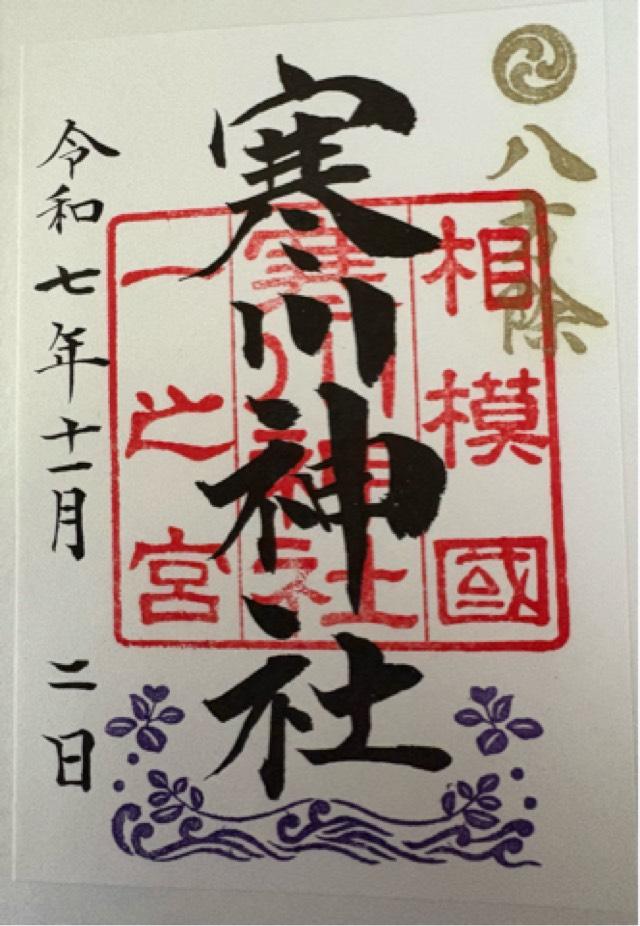 八方除
相模國
寒川神社
一之宮
寒川神社
令和七年十一月 二日